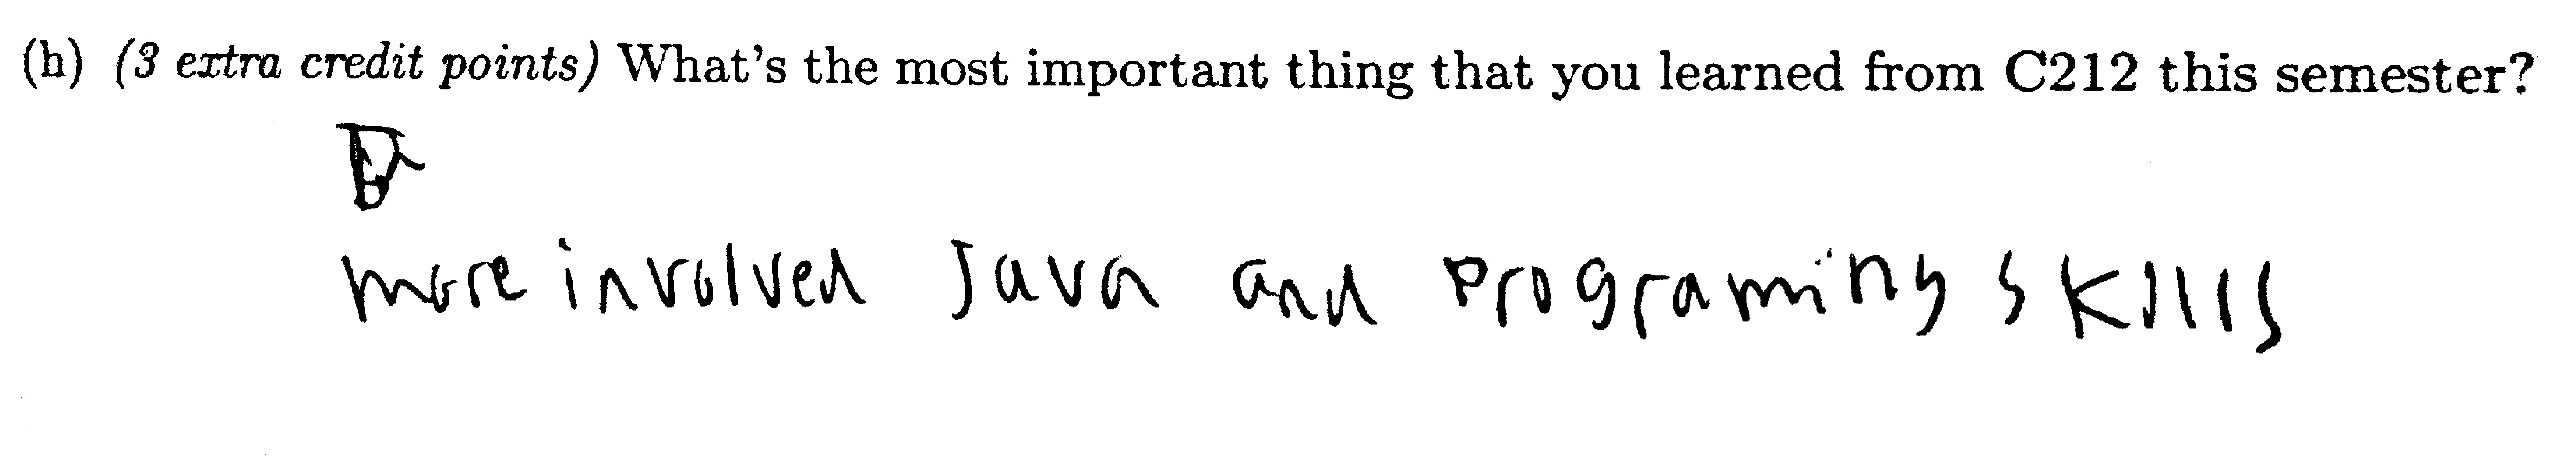 (h) (3 extra credit points) What's the most important thing that you learned from C212 this semester?
more involved Java and programing skills